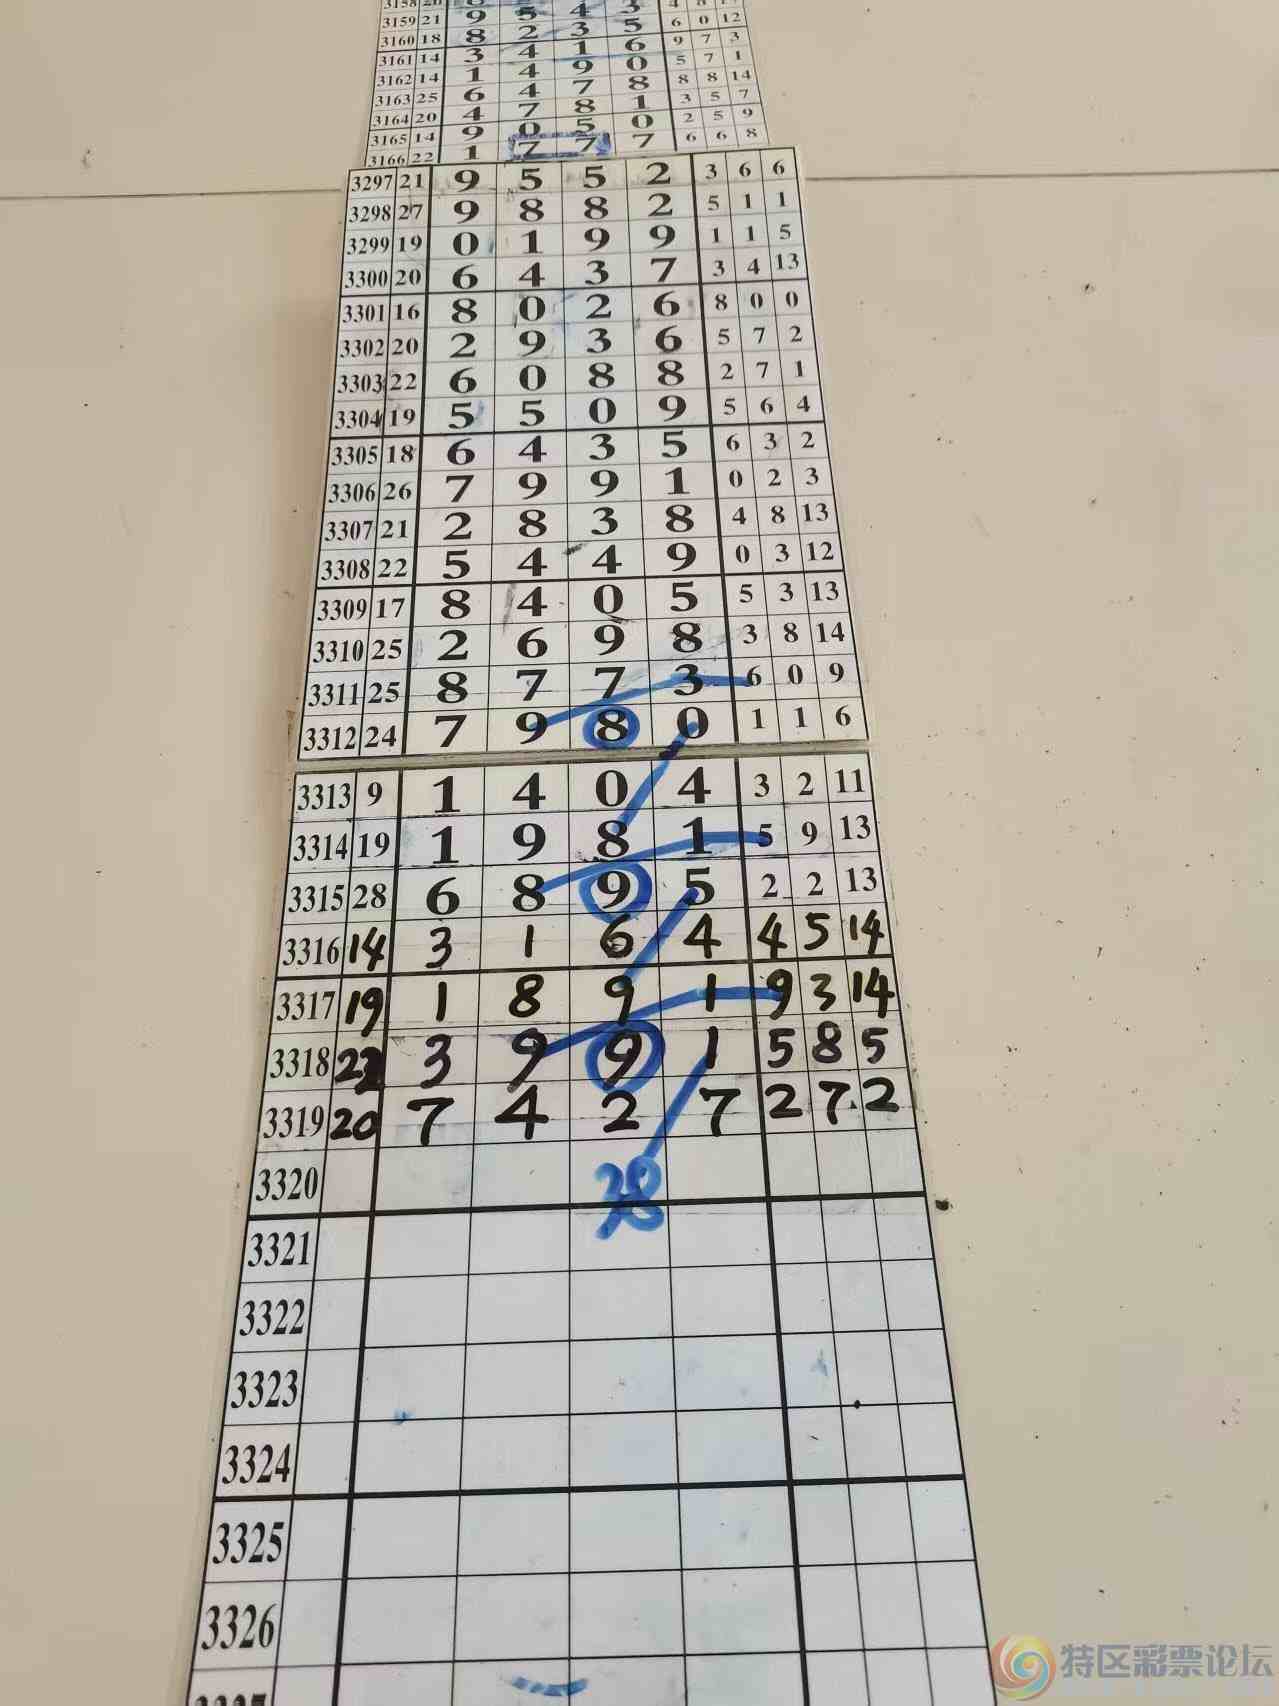 3159 21 9 5 4 3 6 0 12
3160 18 8 2 3 5 9 7 3
3161 14 3 4 1 6 5 7 1
3162 14 1 4 9 0 8 8 14
3163 25 6 4 7 8 3 5 7
3164 20 4 7 8 1 2 5 9
3165 14 9 0 5 0 6 6 8
3166 22 1 7 7 7
3297 21 9 5 5 2 3 6 6
3298 27 9 8 8 2 5 1 1
3299 19 0 1 9 9 1 1 5
3300 20 6 4 3 7 3 4 13
3301 16 8 0 2 6 8 0 0
3302 20 2 9 3 6 5 7 2
3303 22 6 0 8 8 2 7 1
3304 19 5 5 0 9 5 6 4
3305 18 6 4 3 5 6 3 2
3306 26 7 9 9 1 0 2 3
3307 21 2 8 3 8 4 8 13
3308 22 5 4 4 9 0 3 12
3309 17 8 4 0 5 5 3 13
3310 25 2 6 9 8 3 8 14
3311 25 8 7 7 3 6 0 9
3312 24 7 9 8 0 1 1 6
3313 9 1 4 0 4 3 2 11
3314 19 1 9 8 1 5 9 13
3315 28 6 8 9 5 2 2 13
3316 14 3 1 6 4 4 5 14
3317 19 1 8 9 1 9 3 14
3318 3 9 9 1 5 8 5
3319 20 7 4 2 7 2 7 2
3320 38
3321
3322
3323
3324
3325
3326
特区彩票论坛